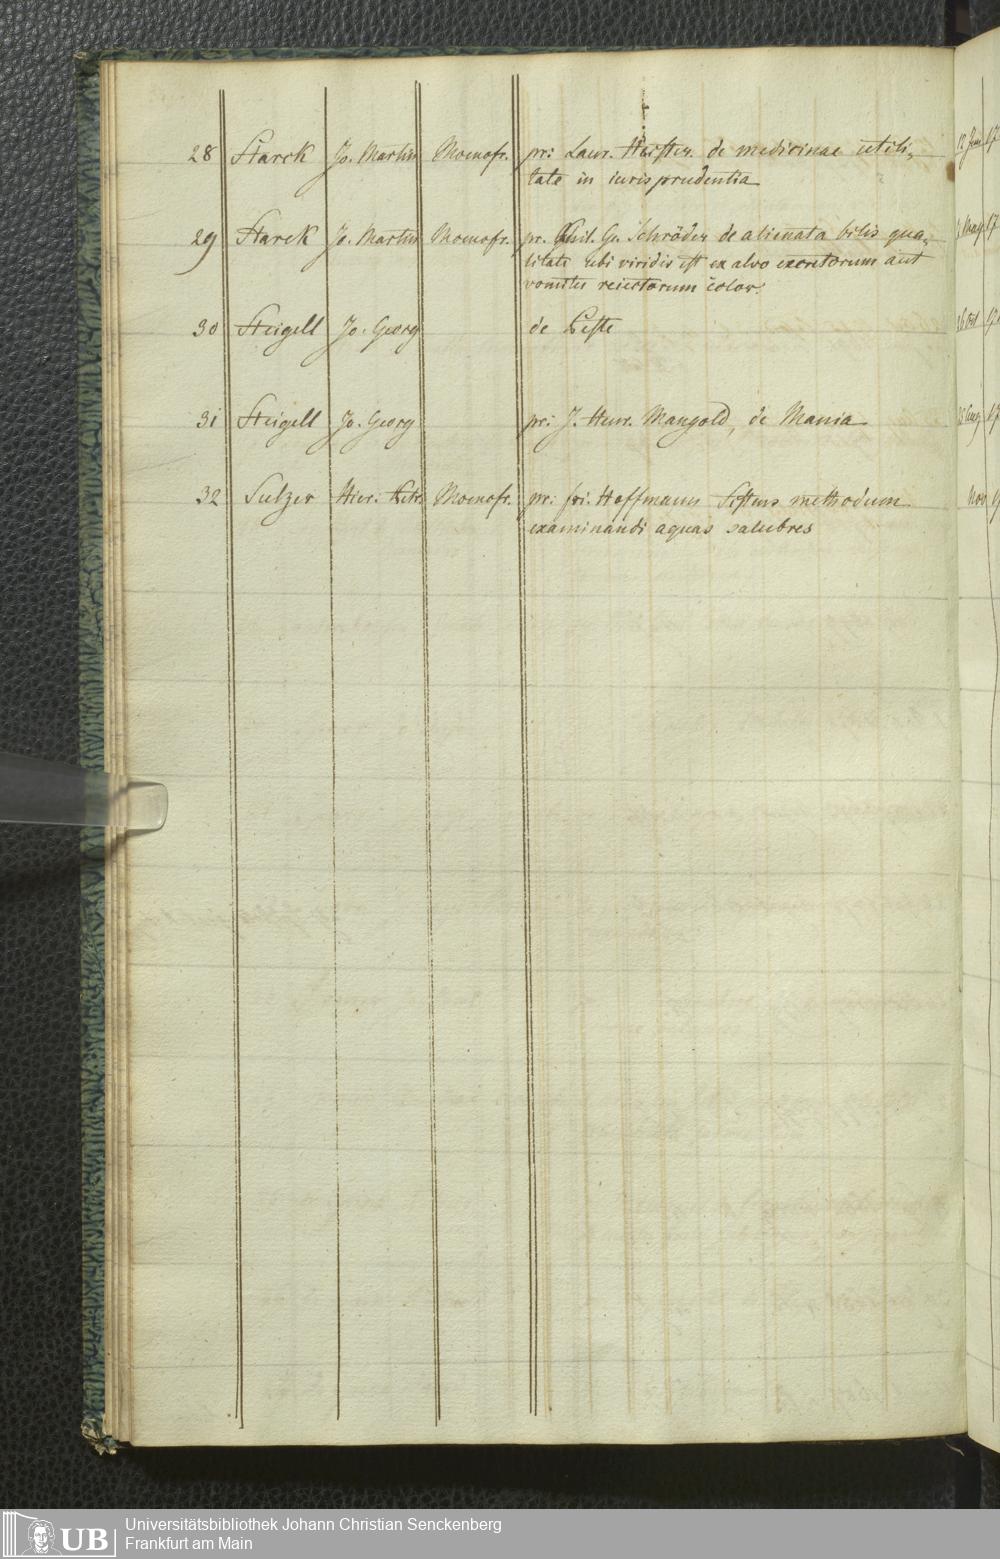 28 Starck Jo. Martin Moenofr. pr: Laur. Heister. de medicinae utili- 12 Jun 17
tate in iurisprudentia
29 Starck Jo. Martin Moenofr. pr. Phil. Ge. Schröder de alienata bilis qua- May 17
litate ubi viridis est ex alvo excretorum aut
vomitu reiectorum color.
30 Steigell Jo. Georg de Peste
31 Steigell Jo. Georg pr: J. Henr. Mangold, de Mania Aug 17
32 Sulzer Hier. Petr. Moenofr. pr: fri. Hoffmann Sistens methodum Nov
examinandi aquas salubres
UB Universitätsbibliothek Johann Christian Senckenberg
Frankfurt am Main